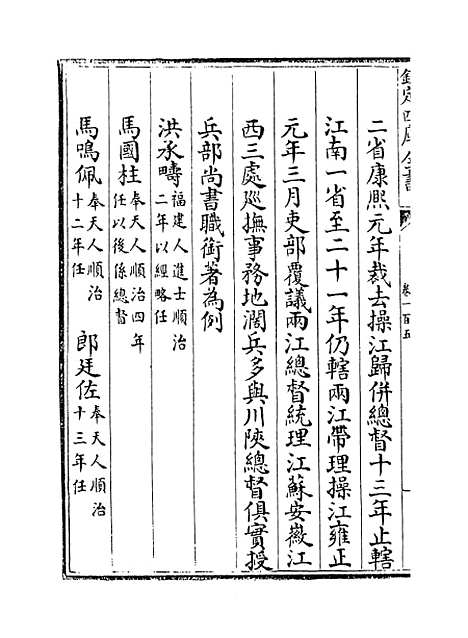 欽定四庫全書
卷一百五
二省康熙元年裁去操江歸併總督十三年止轄
江南一省至二十一年仍轄兩江帶理操江雍正
元年三月吏部覆議兩江總督統理江蘇安徽江
西三處廵撫事務地濶兵多與川陝總督俱實授
兵部尚書職銜著為例
洪承疇福建人進士順治
二年以經略任
馬國柱奉天人順治四年
任以後係總督
馬鳴佩奉天人順治
十二年任
郎廷佐奉天人順治
十三年任